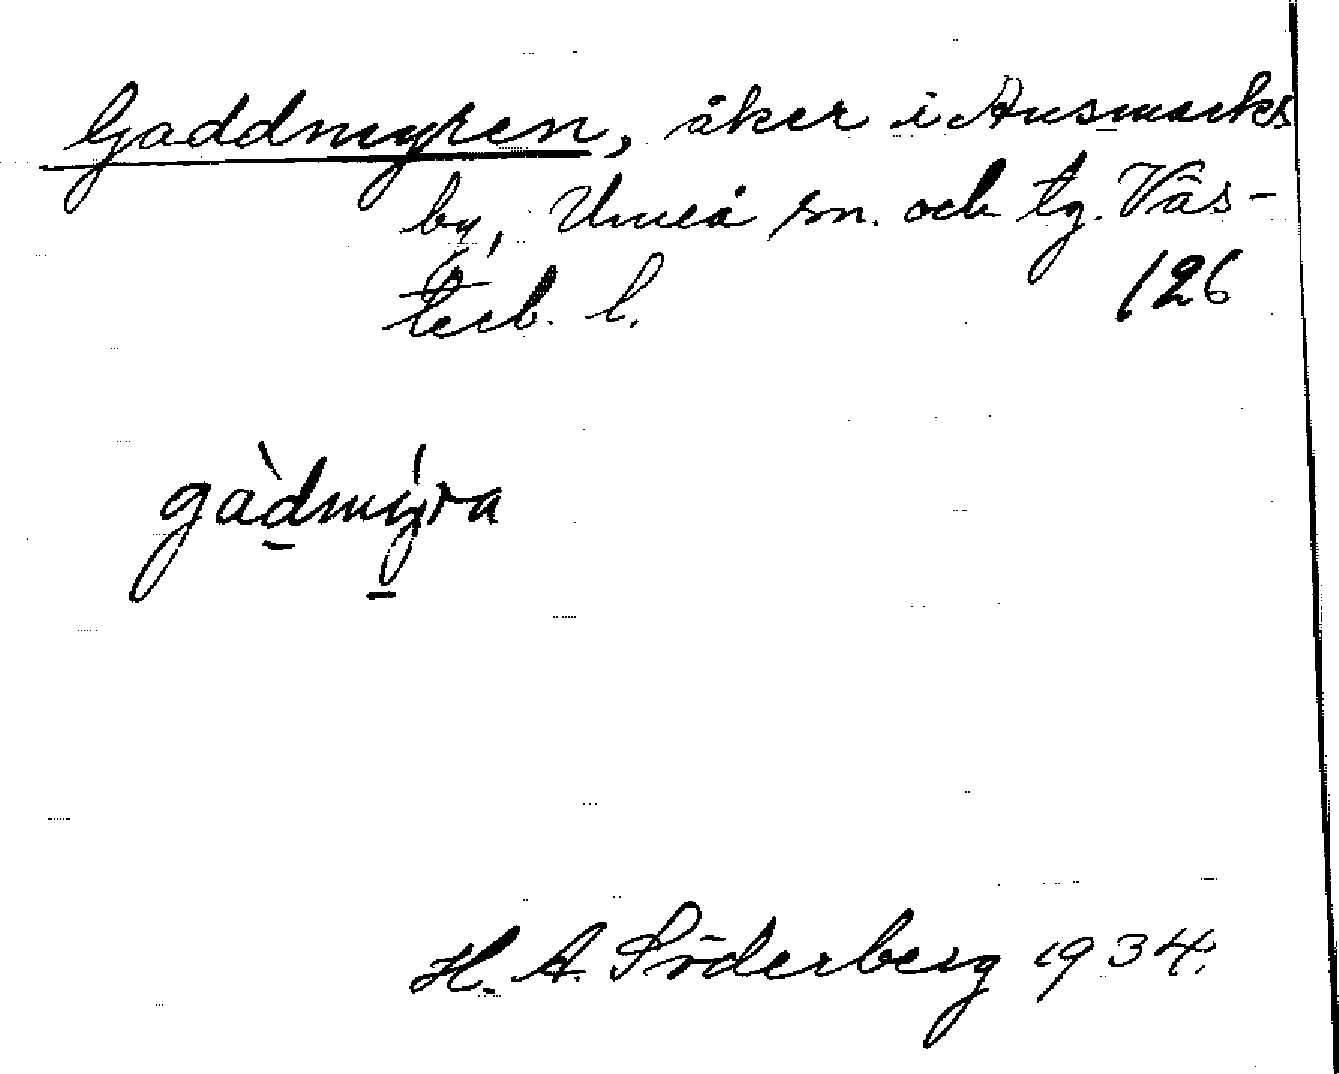 Gaddmyren, åker i Ansmarks
by, Umeå sn. och tg. Väs-
terb. l. 126
gàdmýra
H. A. Söderberg 1934.